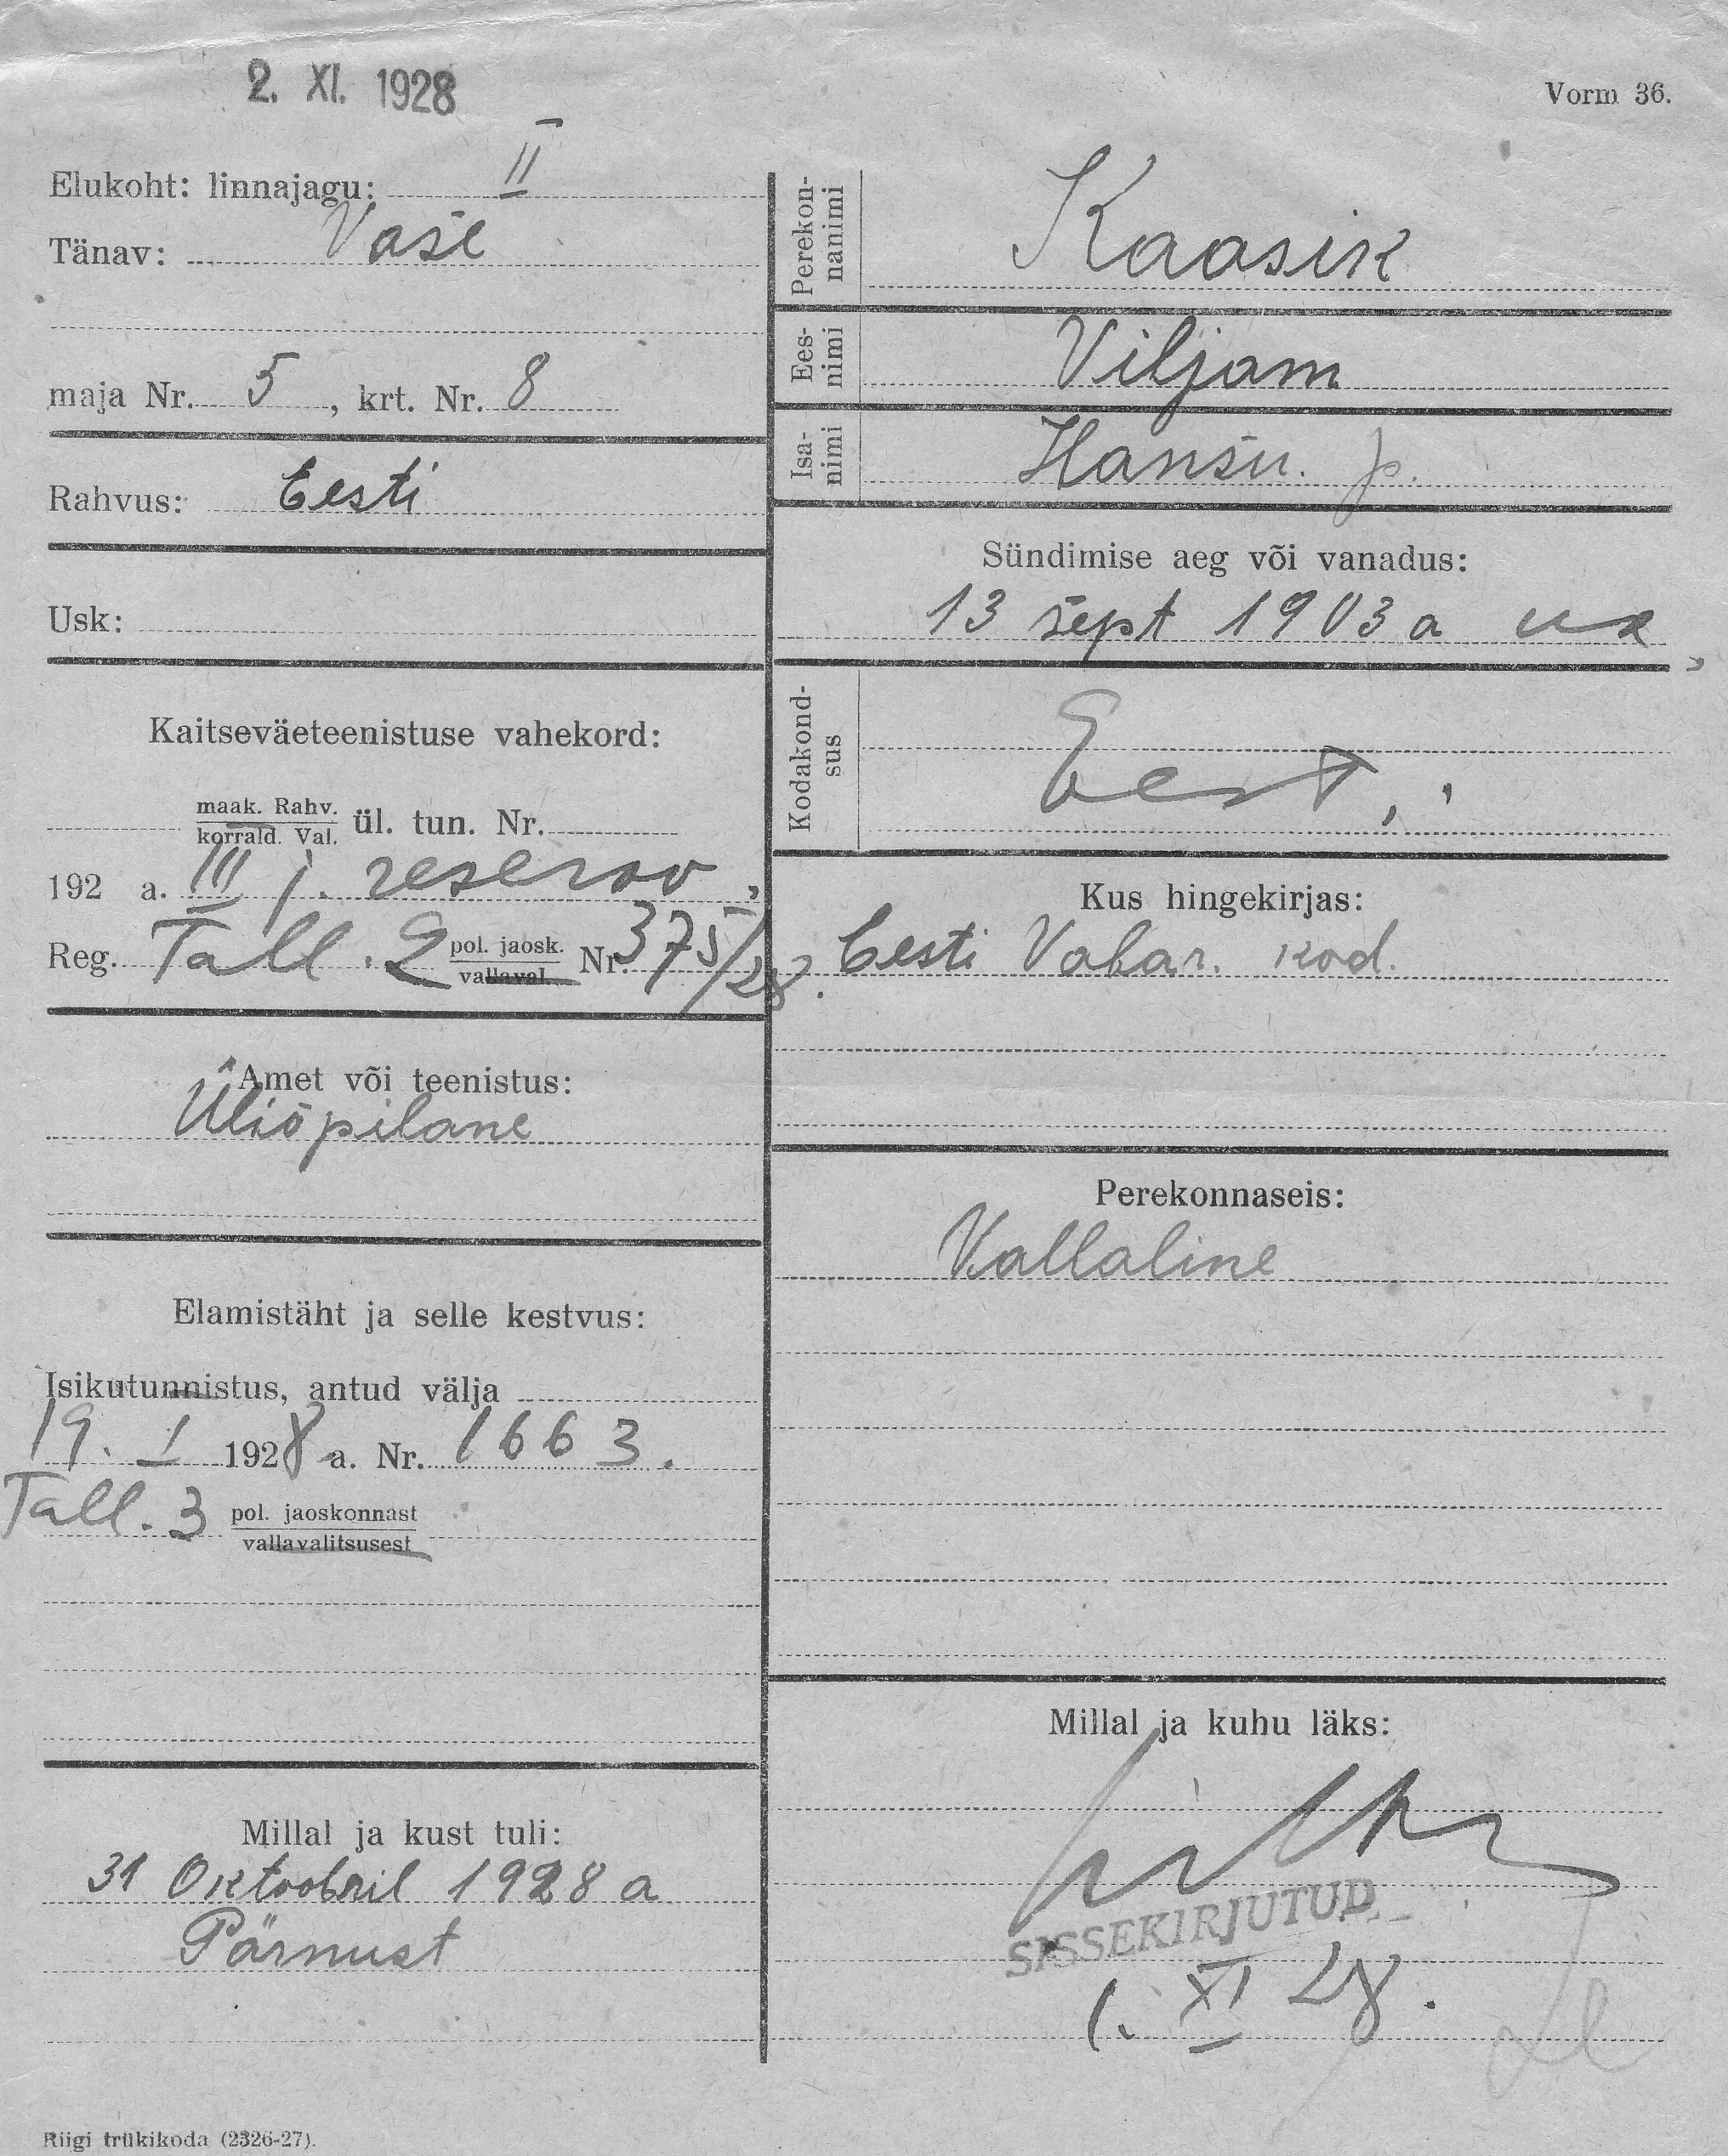 2. XI. 1928
Vorm 36.
Elukoht: linnajagu: II
Tänav: Vase
maja Nr. 5, krt. Nr. 8
Rahvus: Eesti
Usk:
Kaitseväeteenistuse vahekord:
maak. Rahv.
korrald. Val. ül. tun. Nr.
192 a. III j. reserv.
Reg. Tall. 2 pol. jaosk. Nr. 375/28.
vallaval.
Amet või teenistus:
Üliõpilane
Elamistäht ja selle kestvus:
Isikutunnistus, antud välja
19. I 1928 a. Nr. 1663.
Tall. 3 pol. jaoskonnast
vallavalitsusest
Millal ja kust tuli:
31 Oktoobril 1928 a
Pärnust
Riigi trükikoda (2326-27).
Perekon-
nanimi Kaasik
Ees-
nimi Viljam
Isa-
nimi Hansu. p.
Sündimise aeg või vanadus:
13 sept 1903 a
Kodakond-
sus Eesti
Kus hingekirjas:
Eesti Vabar. kod.
Perekonnaseis:
Vallaline
Millal ja kuhu läks:
SISSEKIRJUTUD
1. XI 28.